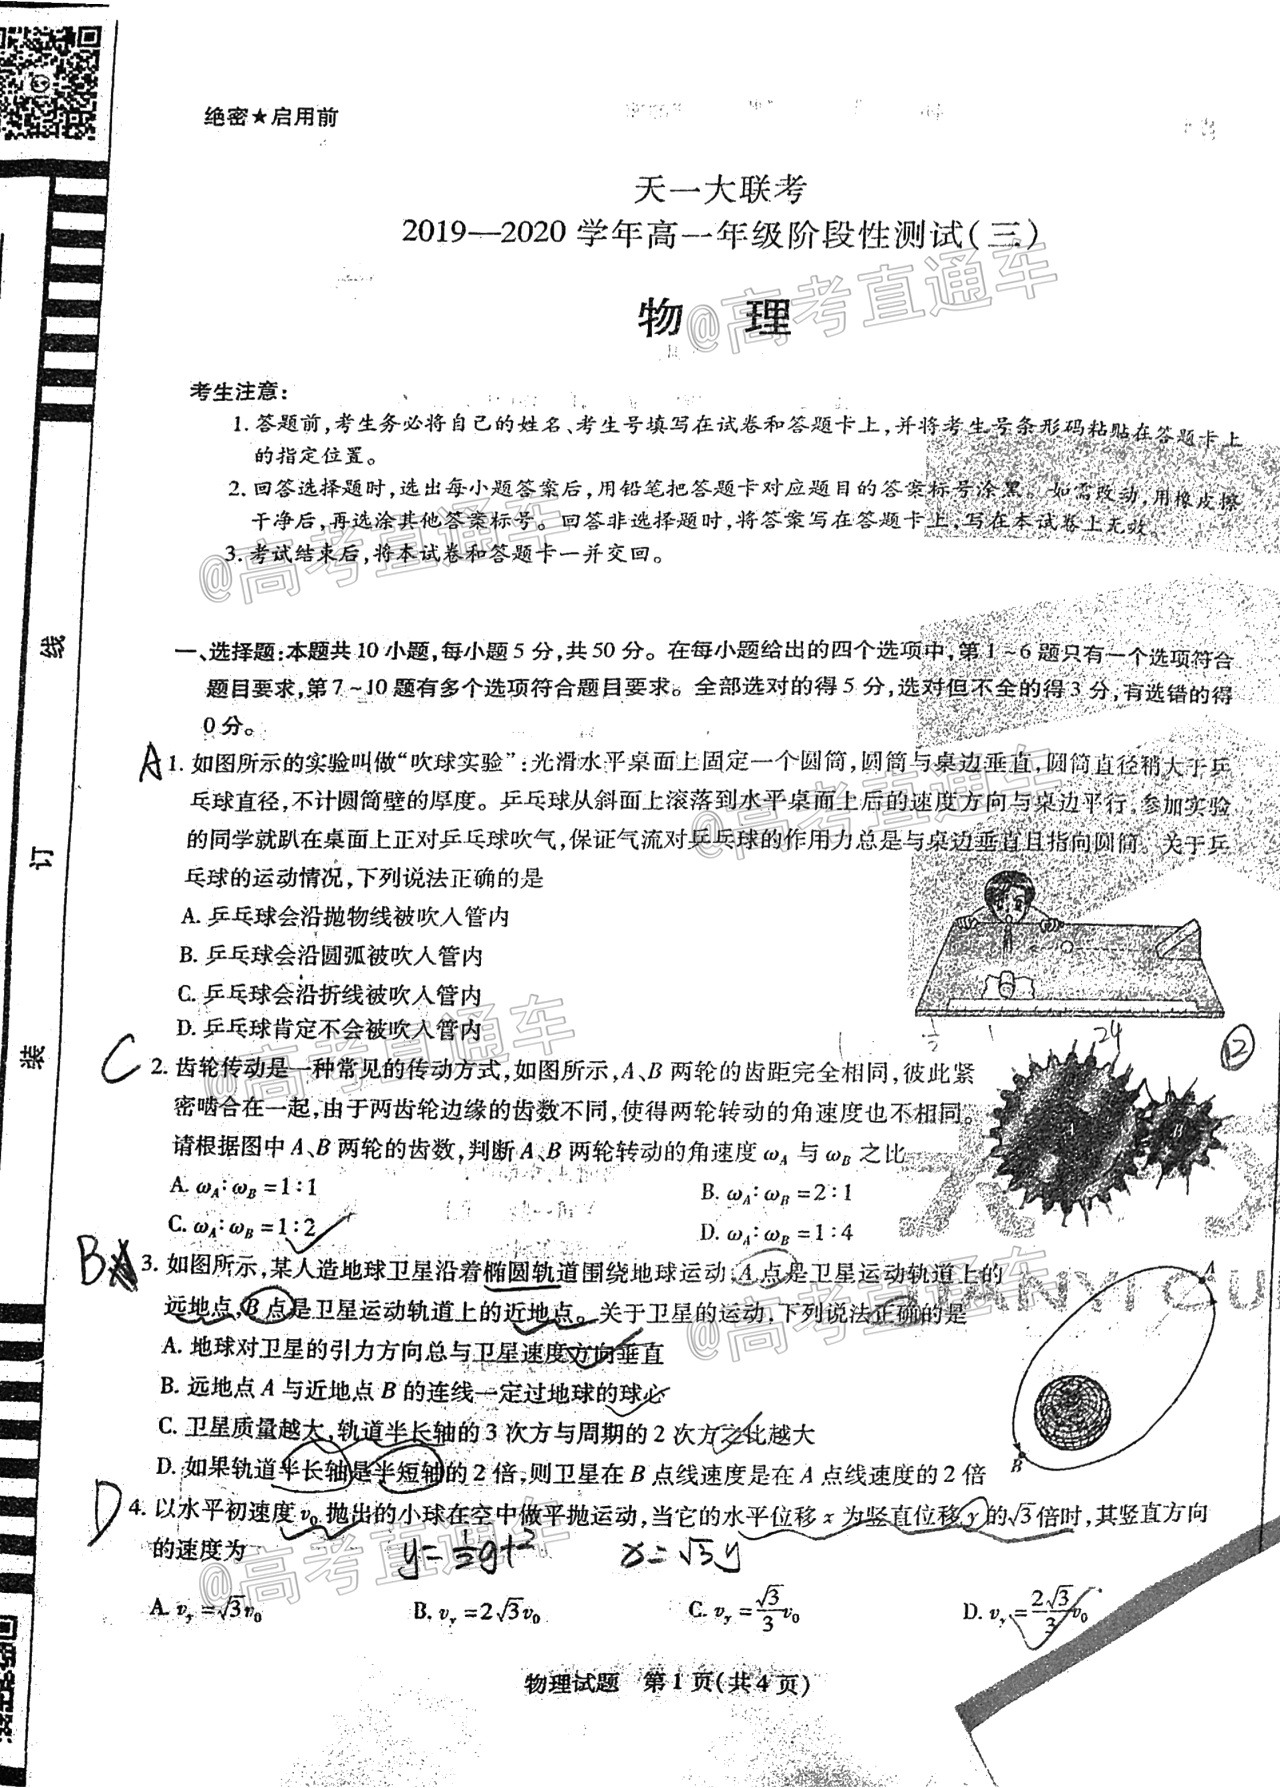 绝密★启用前
天一大联考
2019—2020学年高一年级阶段性测试(三)
物 理
@高考直通车
考生注意:
1.答题前,考生务必将自己的姓名、考生号填写在试卷和答题卡上,并将考生号条形码粘贴在答题卡上
的指定位置。
2.回答选择题时,选出每小题答案后,用铅笔把答题卡对应题目的答案标号涂黑。如需改动,用橡皮擦
干净后,再选涂其他答案标号。回答非选择题时,将答案写在答题卡上,写在本试卷上无效。
3.考试结束后,将本试卷和答题卡一并交回。
@高考直通车
一、选择题:本题共10小题,每小题5分,共50分。在每小题给出的四个选项中,第1~6题只有一个选项符合
题目要求,第7~10题有多个选项符合题目要求。全部选对的得5分,选对但不全的得3分,有选错的得
0分。
A 1.如图所示的实验叫做“吹球实验”:光滑水平桌面上固定一个圆筒,圆筒与桌边垂直,圆筒直径稍大于乒
乓球直径,不计圆筒壁的厚度。乒乓球从斜面上滚落到水平桌面上后的速度方向与桌边平行,参加实验
的同学就趴在桌面上正对乒乓球吹气,保证气流对乒乓球的作用力总是与桌边垂直且指向圆筒。关于乒
乓球的运动情况,下列说法正确的是
@高考直通车
A.乒乓球会沿抛物线被吹入管内
B.乒乓球会沿圆弧被吹入管内
C.乒乓球会沿折线被吹入管内
D.乒乓球肯定不会被吹入管内
@高考直通车
1 24 12
C 2.齿轮传动是一种常见的传动方式,如图所示,A、B两轮的齿距完全相同,彼此紧
密啮合在一起,由于两齿轮边缘的齿数不同,使得两轮转动的角速度也不相同。
请根据图中A、B两轮的齿数,判断A、B两轮转动的角速度ωA与ωB之比
A B
A. ωA:ωB=1:1
B. ωA:ωB=2:1
C. ωA:ωB=1:2
D. ωA:ωB=1:4
B 3.如图所示,某人造地球卫星沿着椭圆轨道围绕地球运动,A点是卫星运动轨道上的
远地点,B点是卫星运动轨道上的近地点。关于卫星的运动,下列说法正确的是
@高考直通车
A.地球对卫星的引力方向总与卫星速度方向垂直
B.远地点A与近地点B的连线一定过地球的球心
C.卫星质量越大,轨道半长轴的3次方与周期的2次方之比越大
D.如果轨道半长轴是半短轴的2倍,则卫星在B点线速度是在A点线速度的2倍
A
B
D 4.以水平初速度v0抛出的小球在空中做平抛运动,当它的水平位移x为竖直位移y的√3倍时,其竖直方向
的速度为
y=1/2gt² x=√3y
@高考直通车
A. vy=√3v0
B. vy=2√3v0
C. vy=√3/3v0
D. vy=2√3/3v0
物理试题 第1页(共4页)
线
订
装